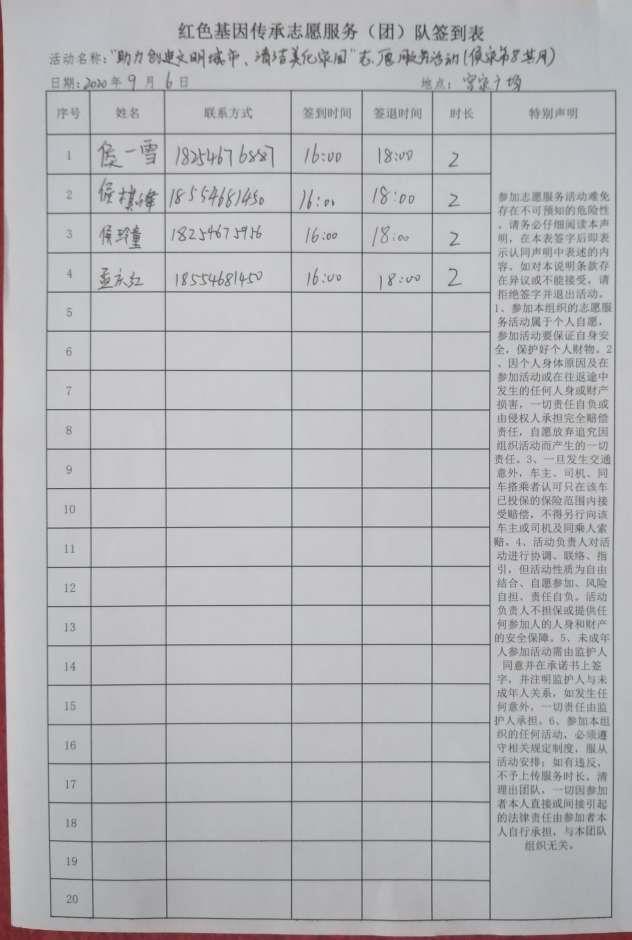 红色基因传承志愿服务（团）队签到表
活动名称：“助力创建文明城市、清洁美化家园”志愿服务活动（侯家第8其月）
日期：2020年9月6日 地点：宫家广场
序号 姓名 联系方式 签到时间 签退时间 时长 特别声明
1 侯一雪 18254676887 16:00 18:00 2
2 侯棋峰 18554681450 16:00 18:00 2
3 侯玲童 18254675956 16:00 18:00 2
4 孟庆红 18554681450 16:00 18:00 2
5
6
7
8
9
10
11
12
13
14
15
16
17
18
19
20
参加志愿服务活动难免
存在不可预知的危险性
，请务必仔细阅读本声
明，在本表签字后即表
示认同声明中表述的内
容。如对本说明条款存
在异议或不能接受，请
拒绝签字并退出活动。
1、参加本组织的志愿服
务活动属于个人自愿，
参加活动要保证自身安
全，保护好个人财物。2
、因个人身体原因及在
参加活动或在往返途中
发生的任何人身或财产
损害，一切责任自负或
由侵权人承担完全赔偿
责任，自愿放弃追究因
组织活动而产生的一切
责任。3、一旦发生交通
意外，车主、司机、同
车搭乘者认可只在该车
已投保的保险范围内接
受赔偿，不得另行向该
车主或司机及同乘人索
赔。4、活动负责人对活
动进行协调、联络、指
引，但活动性质为自由
结合、自愿参加、风险
自担、责任自负。活动
负责人不担保或提供任
何参加人的人身和财产
的安全保障。5、未成年
人参加活动需由监护人
同意并在承诺书上签
字，并注明监护人与未
成年人关系，如发生任
何意外，一切责任由监
护人承担。6、参加本组
织的任何活动，必须遵
守相关规定制度，服从
活动安排；如有违反，
不予上传服务时长，清
理出团队，一切因参加
者本人直接或间接引起
的法律责任由参加者本
人自行承担，与本团队
组织无关。